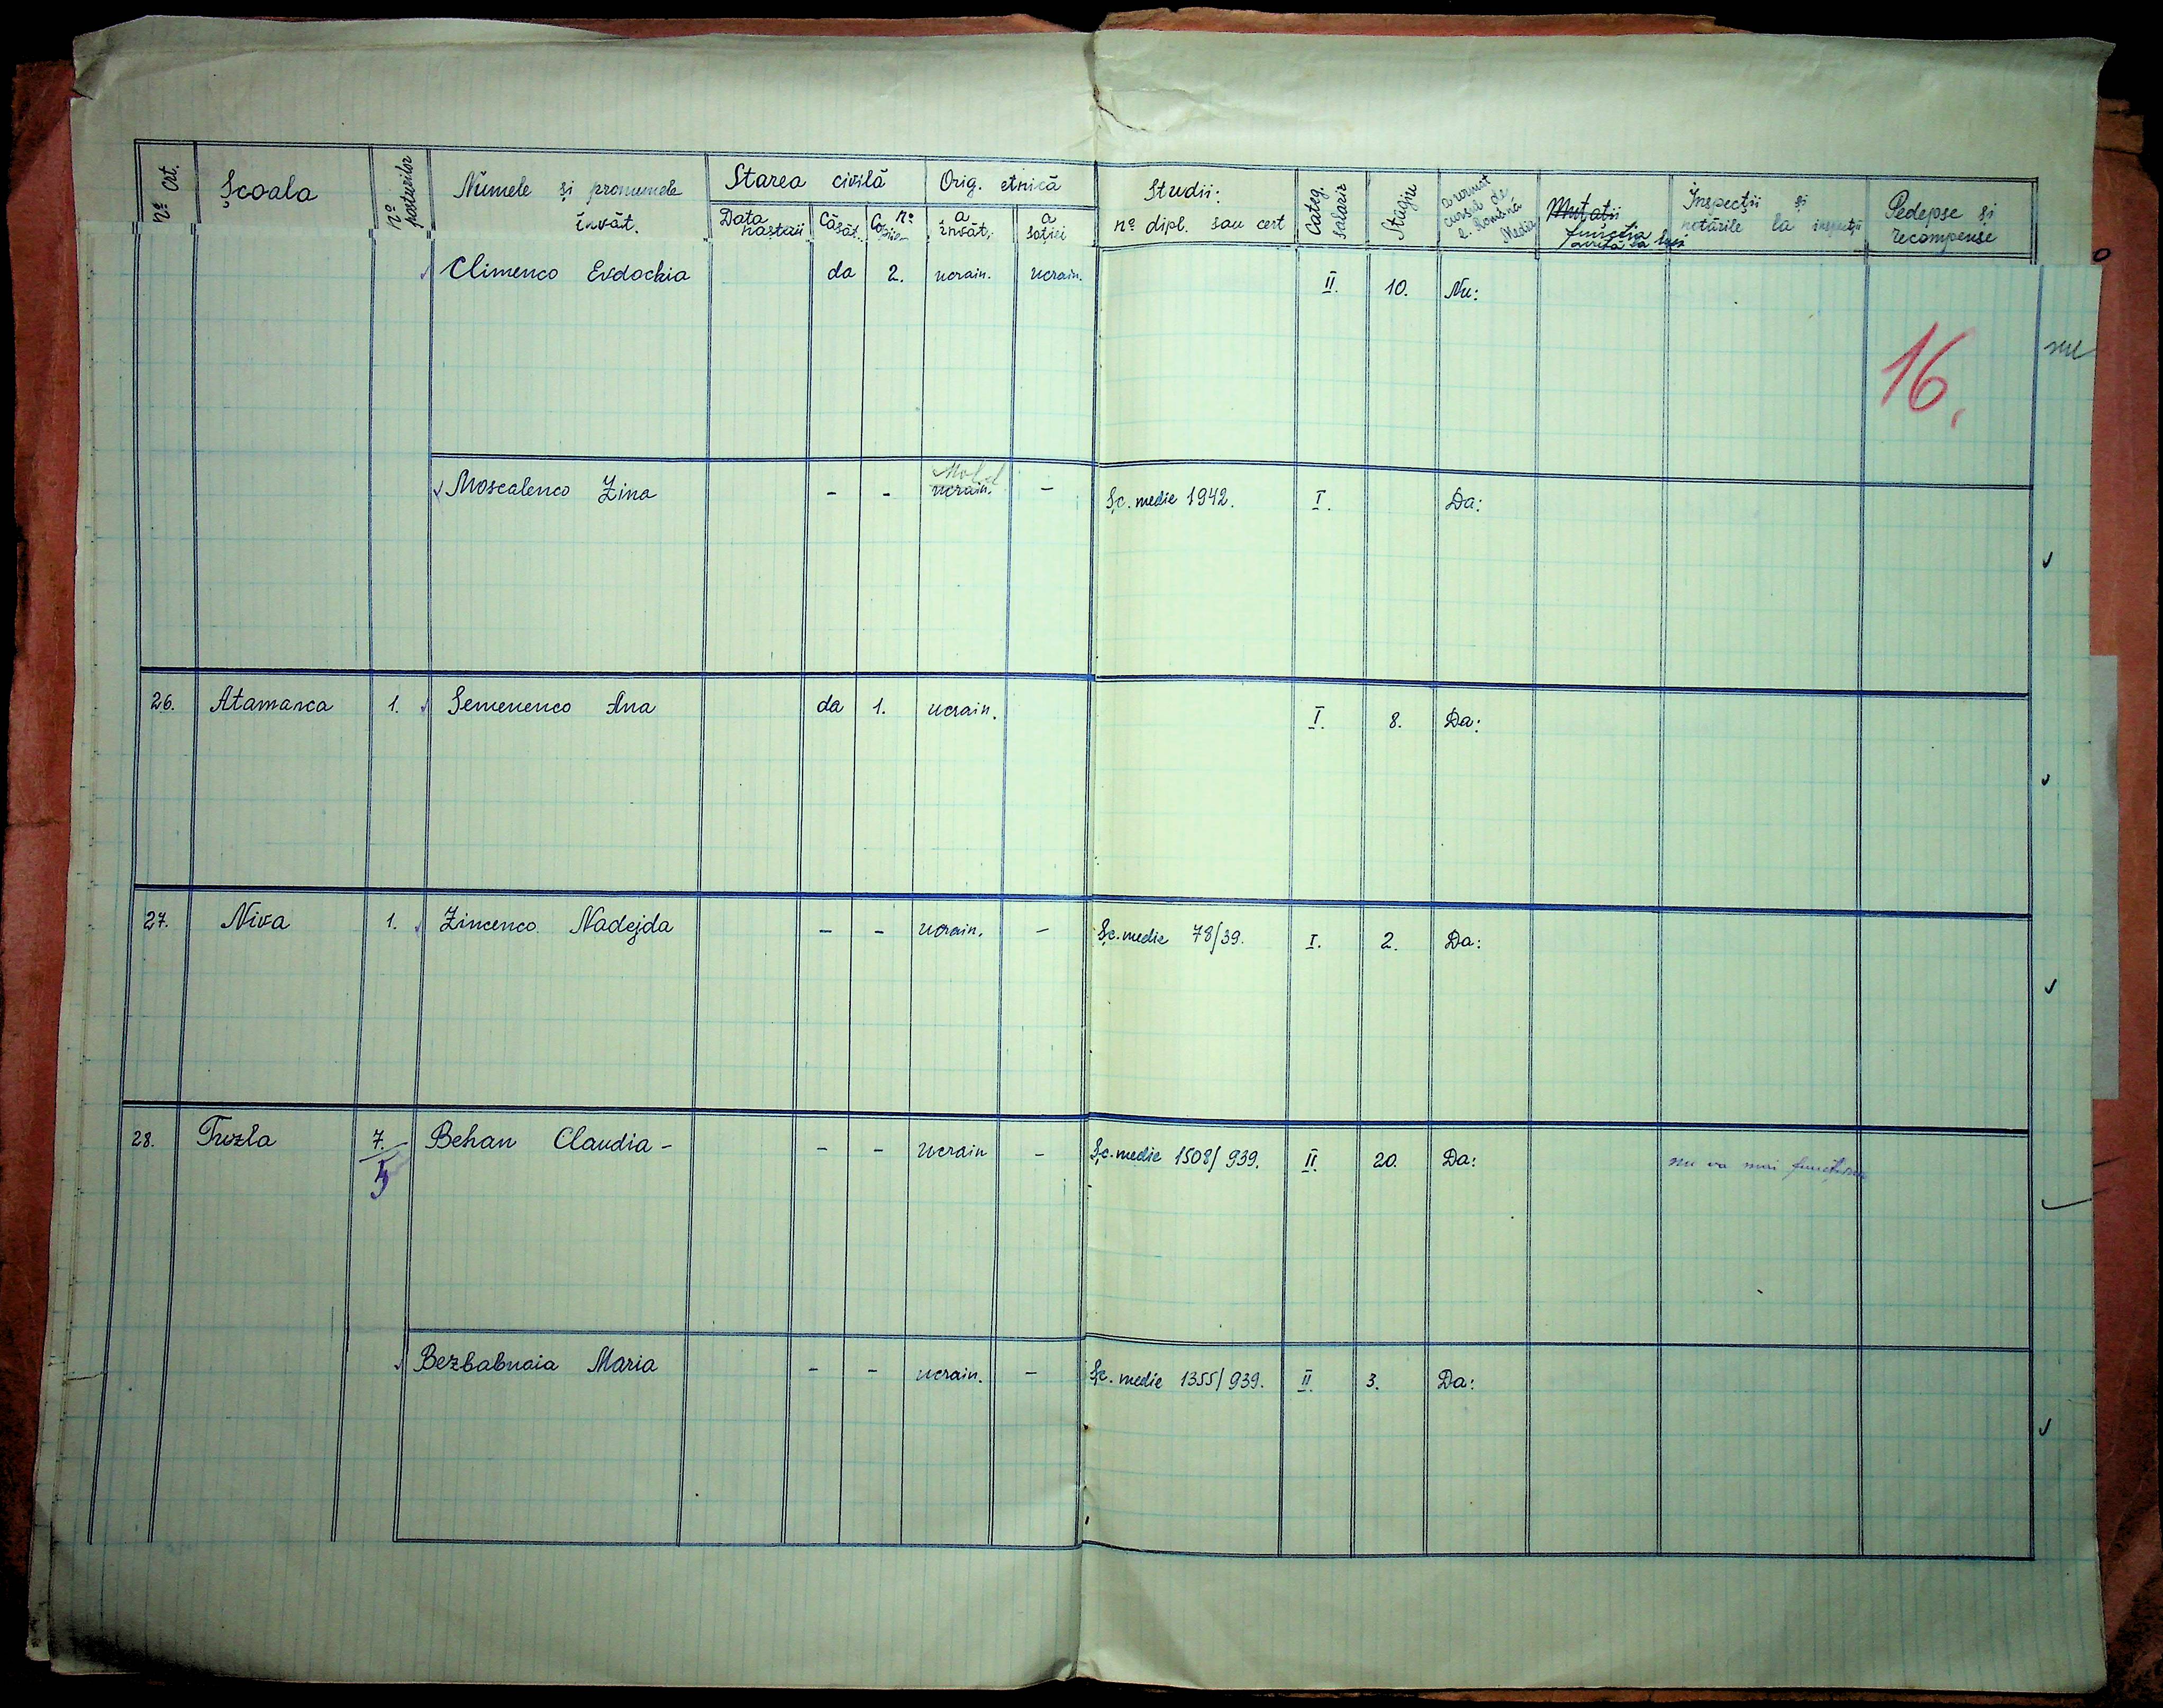 Nº crt. Școala Nº posturilor Numele și pronumele învăț. Starea civilă Orig. etnică Studii: nº dipl. sau cert Categ. salariz Stagiu a urmat cursul de l. Română Media Mutații funcția avută la Inspecții și notările la inspecții Pedepse și recompense
Data nașterii Căsăt. Nº Copiilor a învăț. a soției
Climenco Evdochia da 2. ucrain. ucrain. II. 10. Nu:
16.
nu
Mold
Moscalenco Zina - - ucrain. - Șc. medie 1942. I. Da:
26. Atamanca 1. Semenenco Ana da 1. ucrain. I. 8. Da:
27. Niva 1. Zincenco Nadejda - - ucrain. - Șc. medie 78/39. I. 2. Da:
28. Tuzla 7. Behan Claudia - - - ucrain - Șc. medie 1508/939. II. 20. Da: nu va mai funcționa
5
Bezbabnaia Maria - - ucrain. - Șc. medie 1355/939. II. 3. Da: